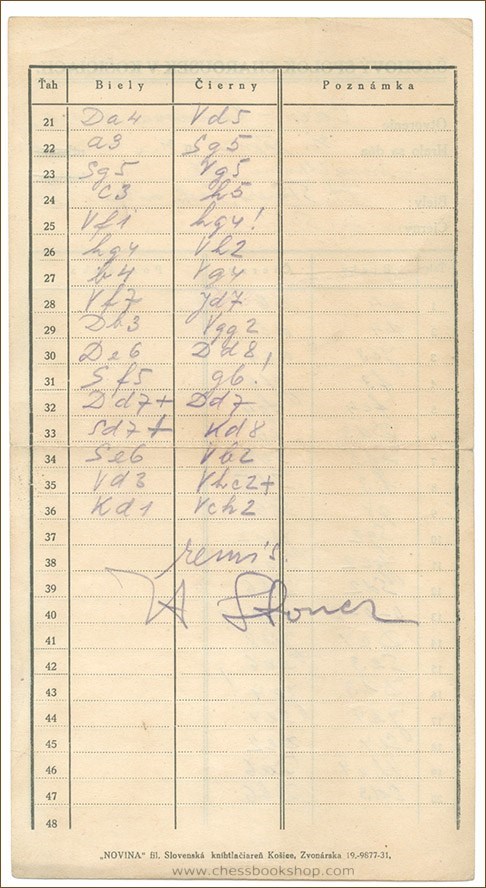 Ťah Biely Čierny Poznámka
21 Da4 Vd5
22 a3 Sg5
23 Sg5 Vg5
24 c3 h5
25 Vf1 hg4!
26 hg4 Vh2
27 b4 Vg4
28 Vf7 Jd7
29 Db3 Vgg2
30 De6 Dd8!
31 Sf5 gb!
32 Dd7+ Dd7
33 Sd7+ Kd8
34 Se6 Vb2
35 Vd3 Vhc2+
36 Kd1 Vch2
37
38 remis.
39
40
41
42
43
44
45
46
47
48
„NOVINA" fil. Slovenská knihtlačiareň Košice, Zvonárska 19.-9877-31.
www.chessbookshop.com